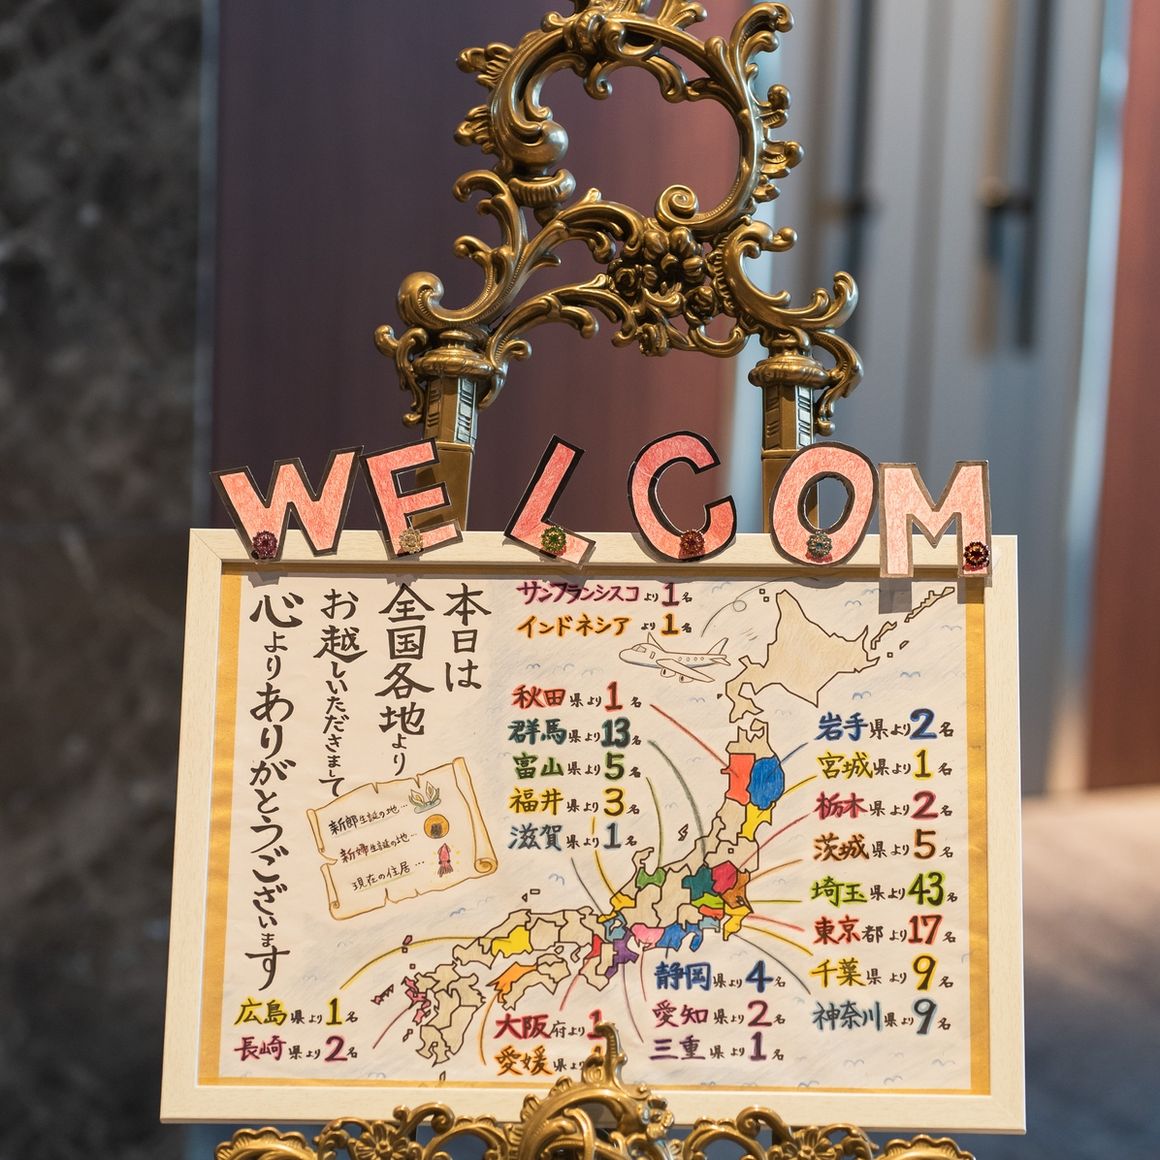 WELCOM
本日は
全国各地より
お越しいただきまして
心よりありがとうございます
新郎生誕の地…
新婦生誕の地…
現在の住居…
サンフランシスコより1名
インドネシアより1名
秋田県より1名
群馬県より13名
富山県より5名
福井県より3名
滋賀県より1名
岩手県より2名
宮城県より1名
栃木県より2名
茨城県より5名
埼玉県より43名
東京都より17名
千葉県より9名
神奈川県より9名
静岡県より4名
愛知県より2名
三重県より1名
大阪府より1
愛媛県より
広島県より1名
長崎県より2名